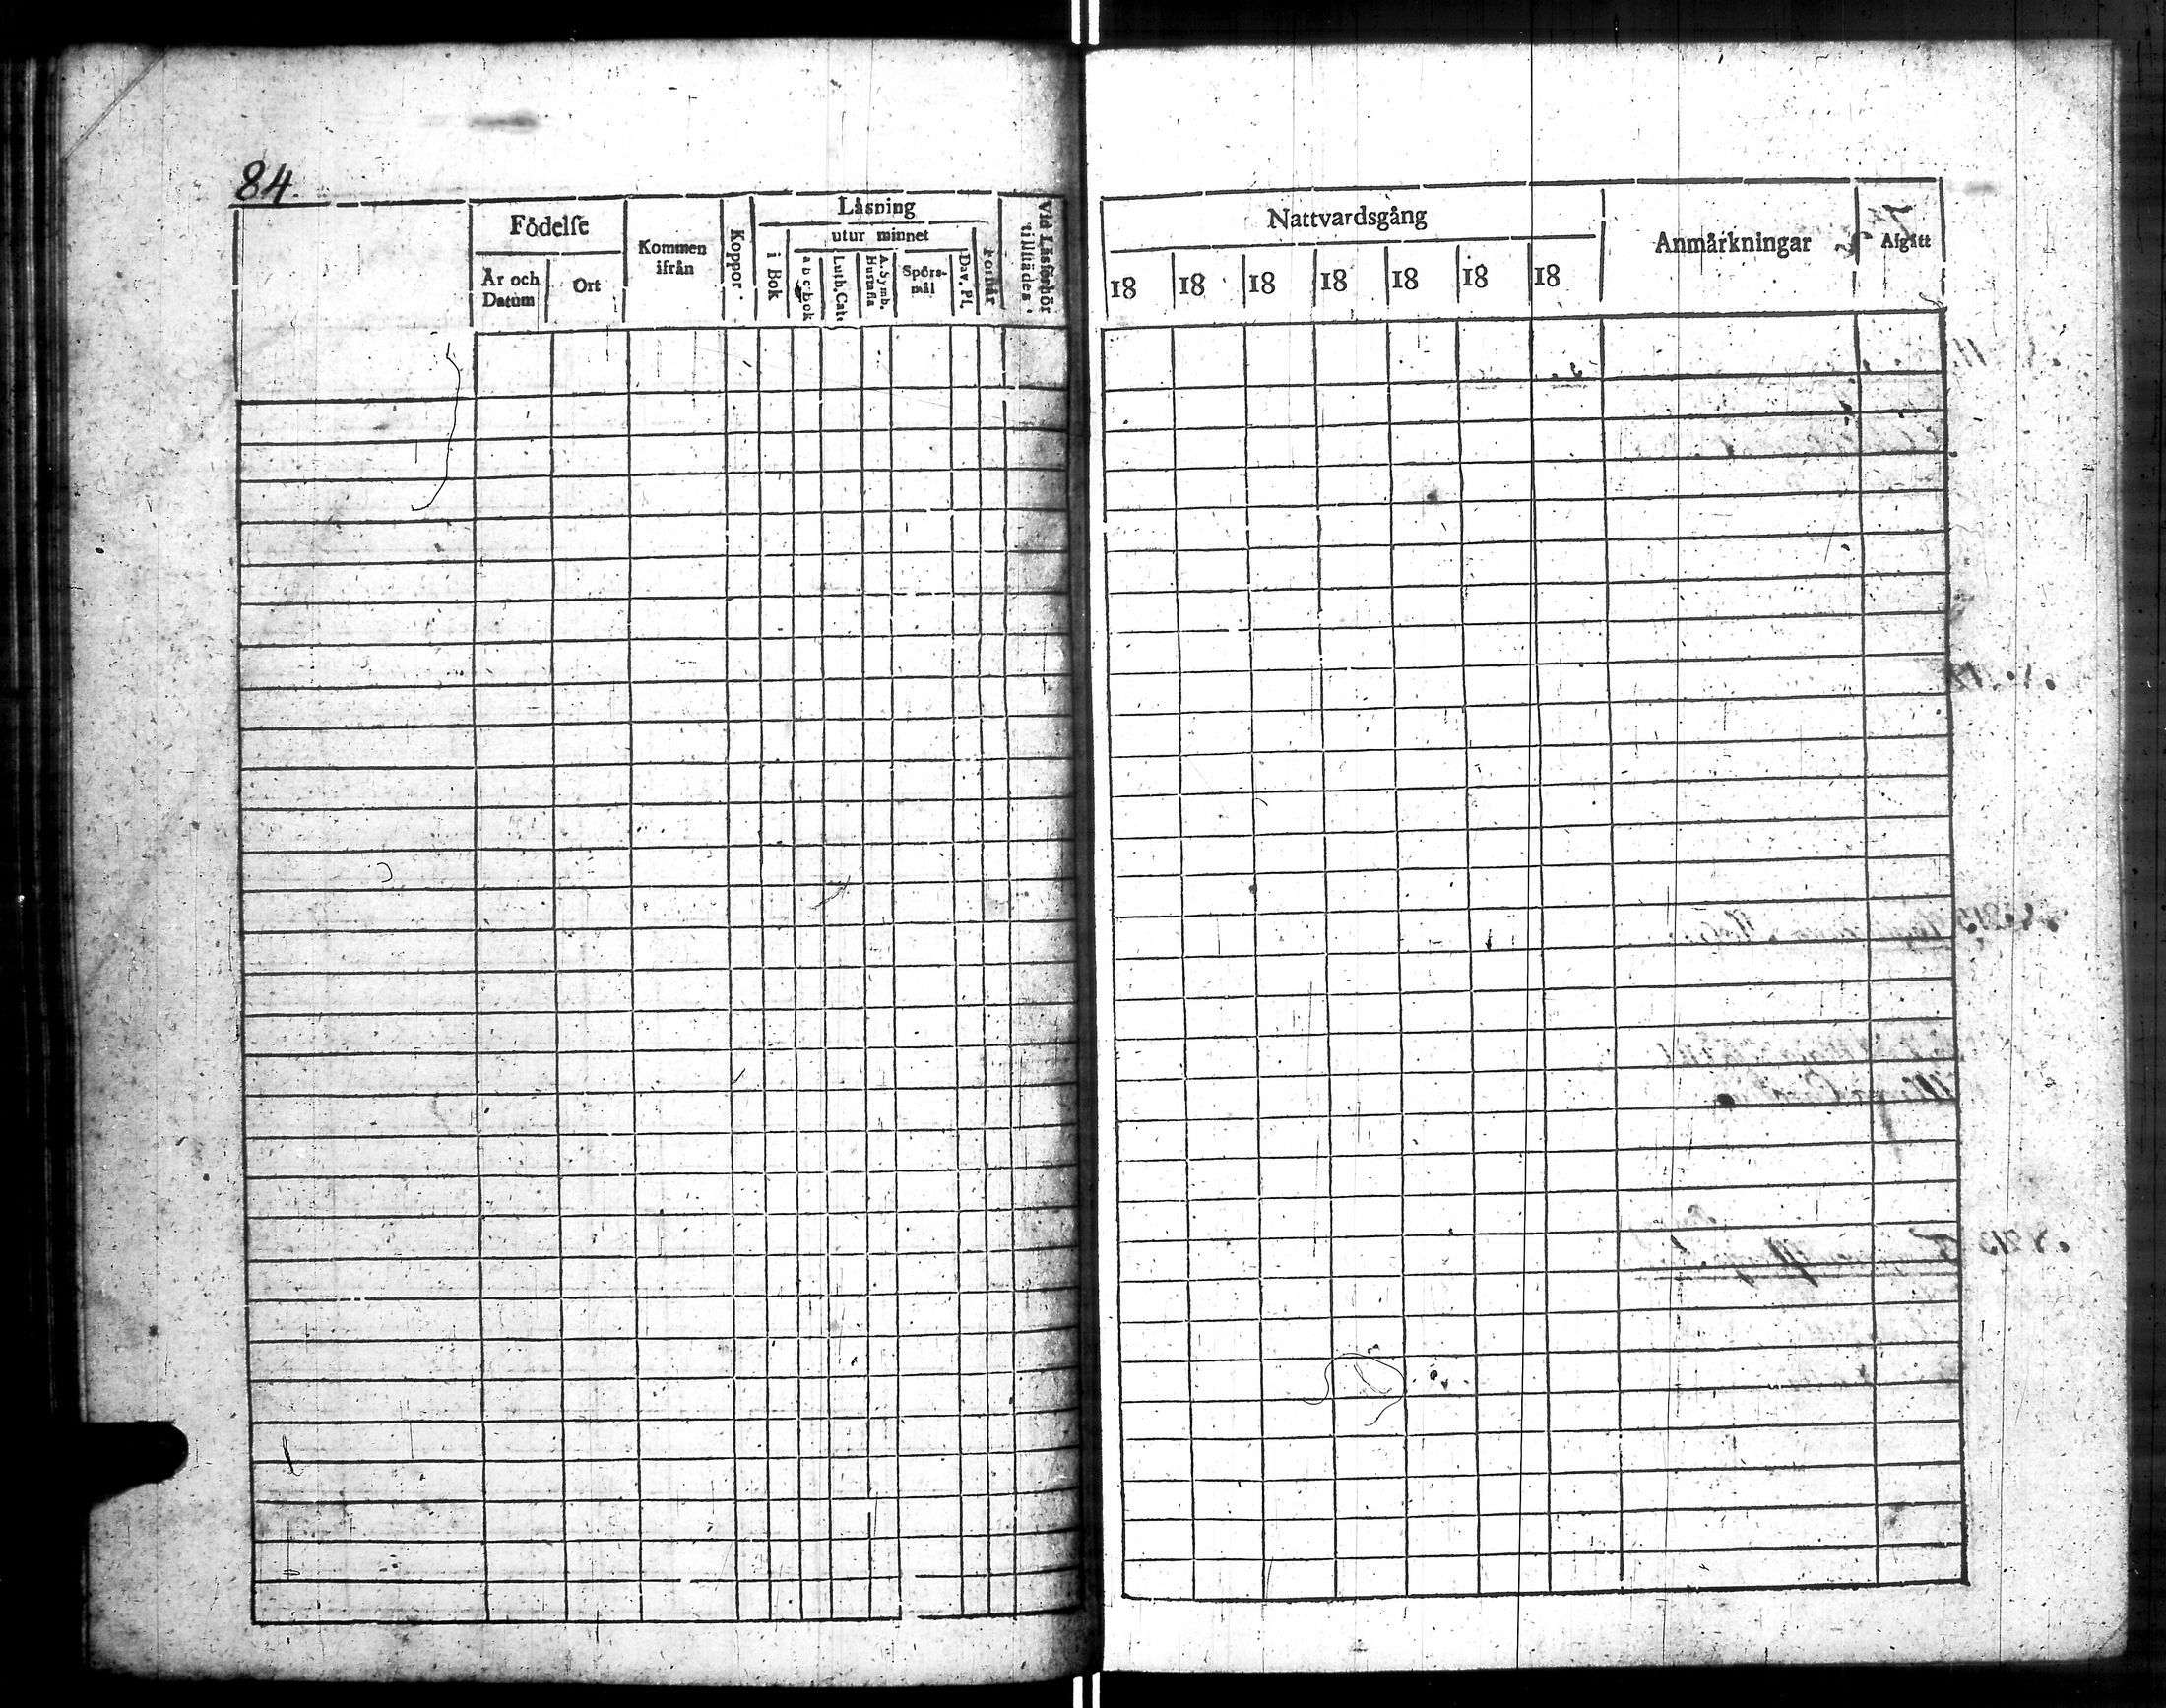 84.
Födelſe
År och Datum
Ort
Kommen ifrån
Koppor.
Låsning
i Bok
utur minnet
a b c-bok
Luth. Cat.
A. Symb. Hustafla
Spörs-mål
Dav. Pſ.
Förſtår
Vid Låsförhör tillſtädes.
Nattvardsgång
18 18 18 18 18 18 18
Anmärkningar
Afgått